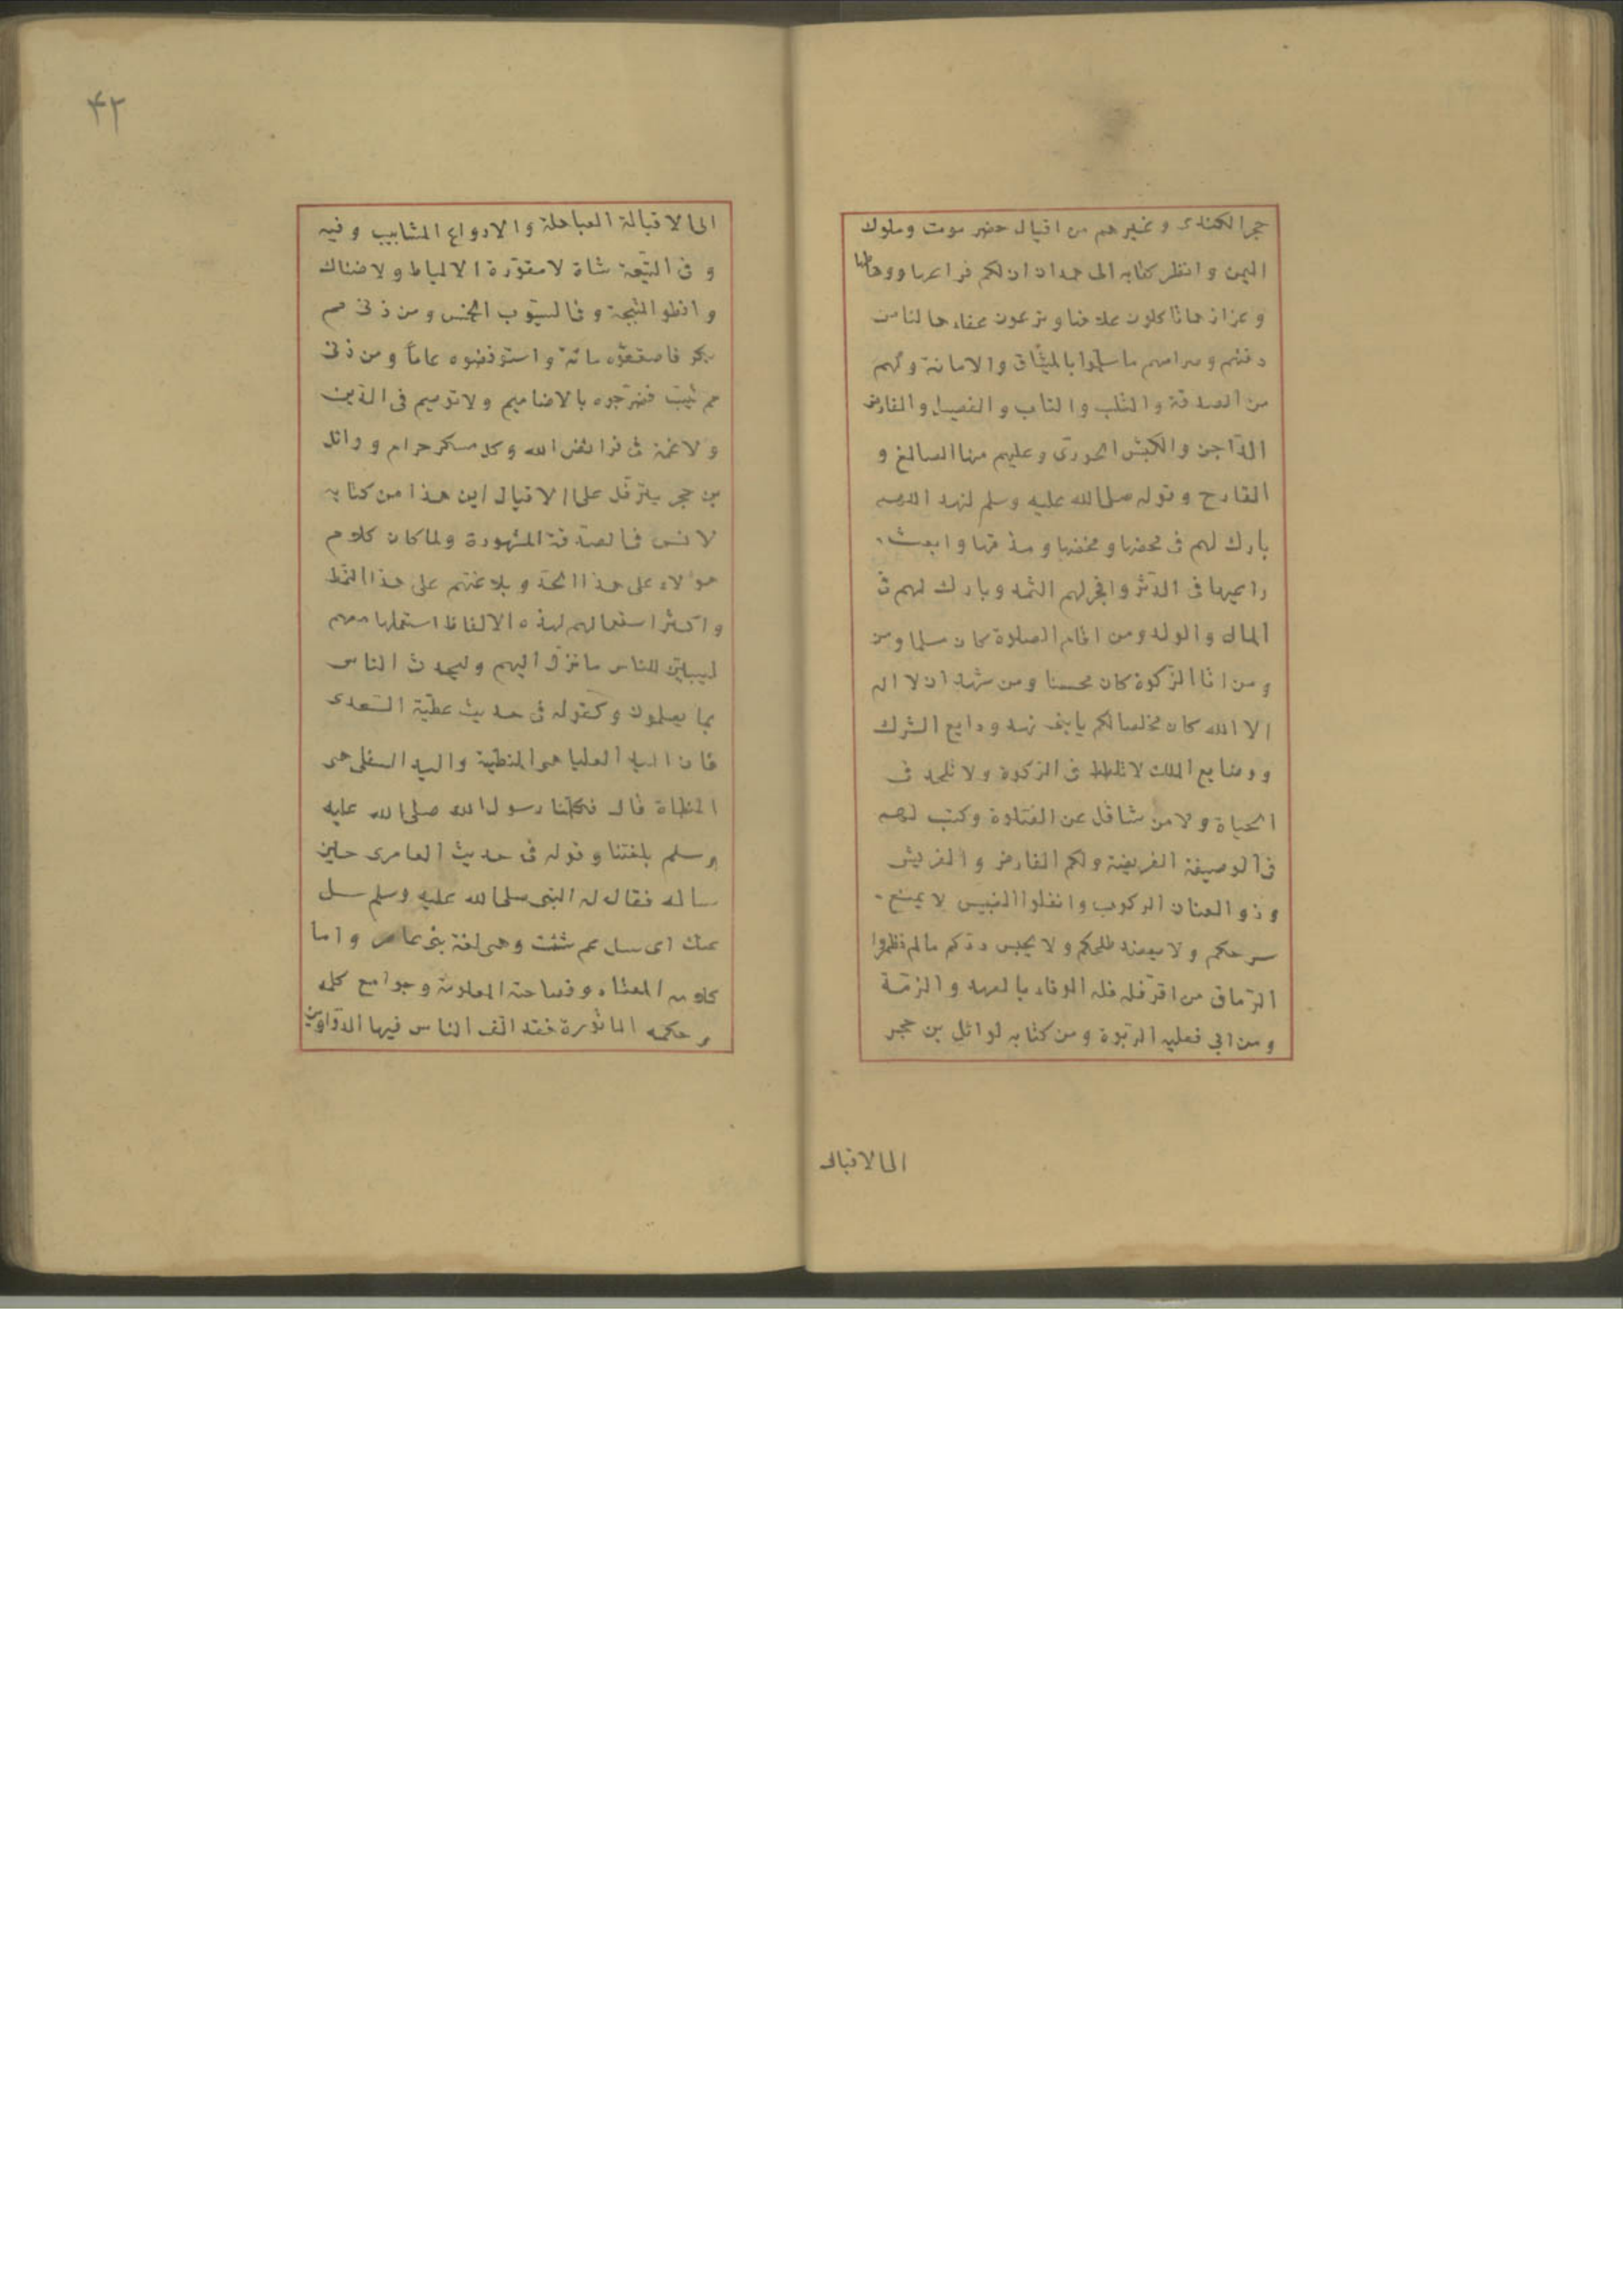 حجر الكندى و غيرهم من اقيال حضر موت وملوك
اليمن و انظر كتابه الى همدان ان لكم فراعها ووهاطها
و عزازها تاكلون علافها وترعون عفاءها لنا من
دفئهم وصرامهم ما سلموا بالميثاق والامانة ولهم
من الصدقة والثلب والناب و الفصيل والفارض
الداجن والكبش الحورى وعليهم منها الصالغ و
القارح وقوله صلى الله عليه وسلم لنهد اللهم
بارك لهم فى محضها و مخضها و مذقها و ابعث
راعيها فى الدثر وافجر لهم الثمد وبارك لهم فى
المال والولد ومن اقام الصلوة كان مسلما ومن
ومن اتا الزكوة كان محسنا ومن شهد ان لا اله
الا الله كان مخلصا لكم يا بنى نهد ودايع الشرك
ووضايع الملك لا تلطط فى الزكوة ولا تلحد فى
الحياة ولا من تثاقل عن الصلوة وكتب لهم
فى الوصيفة الفريضة ولكم الفارض و الفريش
و ذو العنان الركوب وانفلوا الضبيس لا يمنع
سرحكم ولا يعضد طلحكم ولا يحبس دركم مالم تظمروا
الرماق من اقر فله فله الوفاء بالعهد والزمة
ومن ابى فعليه الربوة ومن كتابه لوائل بن حجر
الى الاقبال
۴۲
الى الاقبالة العباهلة والارواع المشابيب وفيه
و فى التيعة شاة لا مقورة الالياط ولا ضناك
و انطوا الثبجة وفى السيوب الخمس ومن زنى مم
بكر فاصقعوه مائة و استوفضوه عاماً ومن زنى
مم ثيب فضرجوه بالاضاميم ولا توصيم فى الدين
ولا غمة فى فرائض الله وكل مسكر حرام و وائل
بن حجر يترفل على الاقيال اين هذا من كتابه
لانس فى الصدقة المشهورة ولما كان كلام
هولاء على هذا الحد و بلاغتهم على هذا النمط
واكثر استعمالهم لهذه الالفاظ استعملها معهم
ليبين للناس ما نزل اليهم وليحدث الناس
بما يعلمون وكقوله فى حديث عطية السعدى
فان اليد العليا هى المنطية واليد السفلى هى
المنطاة قال فكلمنا رسول الله صلى الله عليه
وسلم بلغتنا وقوله فى حديث العامرى حين
ساله فقال له النبى صلى الله عليه وسلم سل
عنك اى سل عم شئت وهى لغة بنى عامر واما
كلامه المعتاد و فصاحته المعلومة وجوامع كلمه
وحكمه الماثورة فقد الف الناس فيها الدواوين